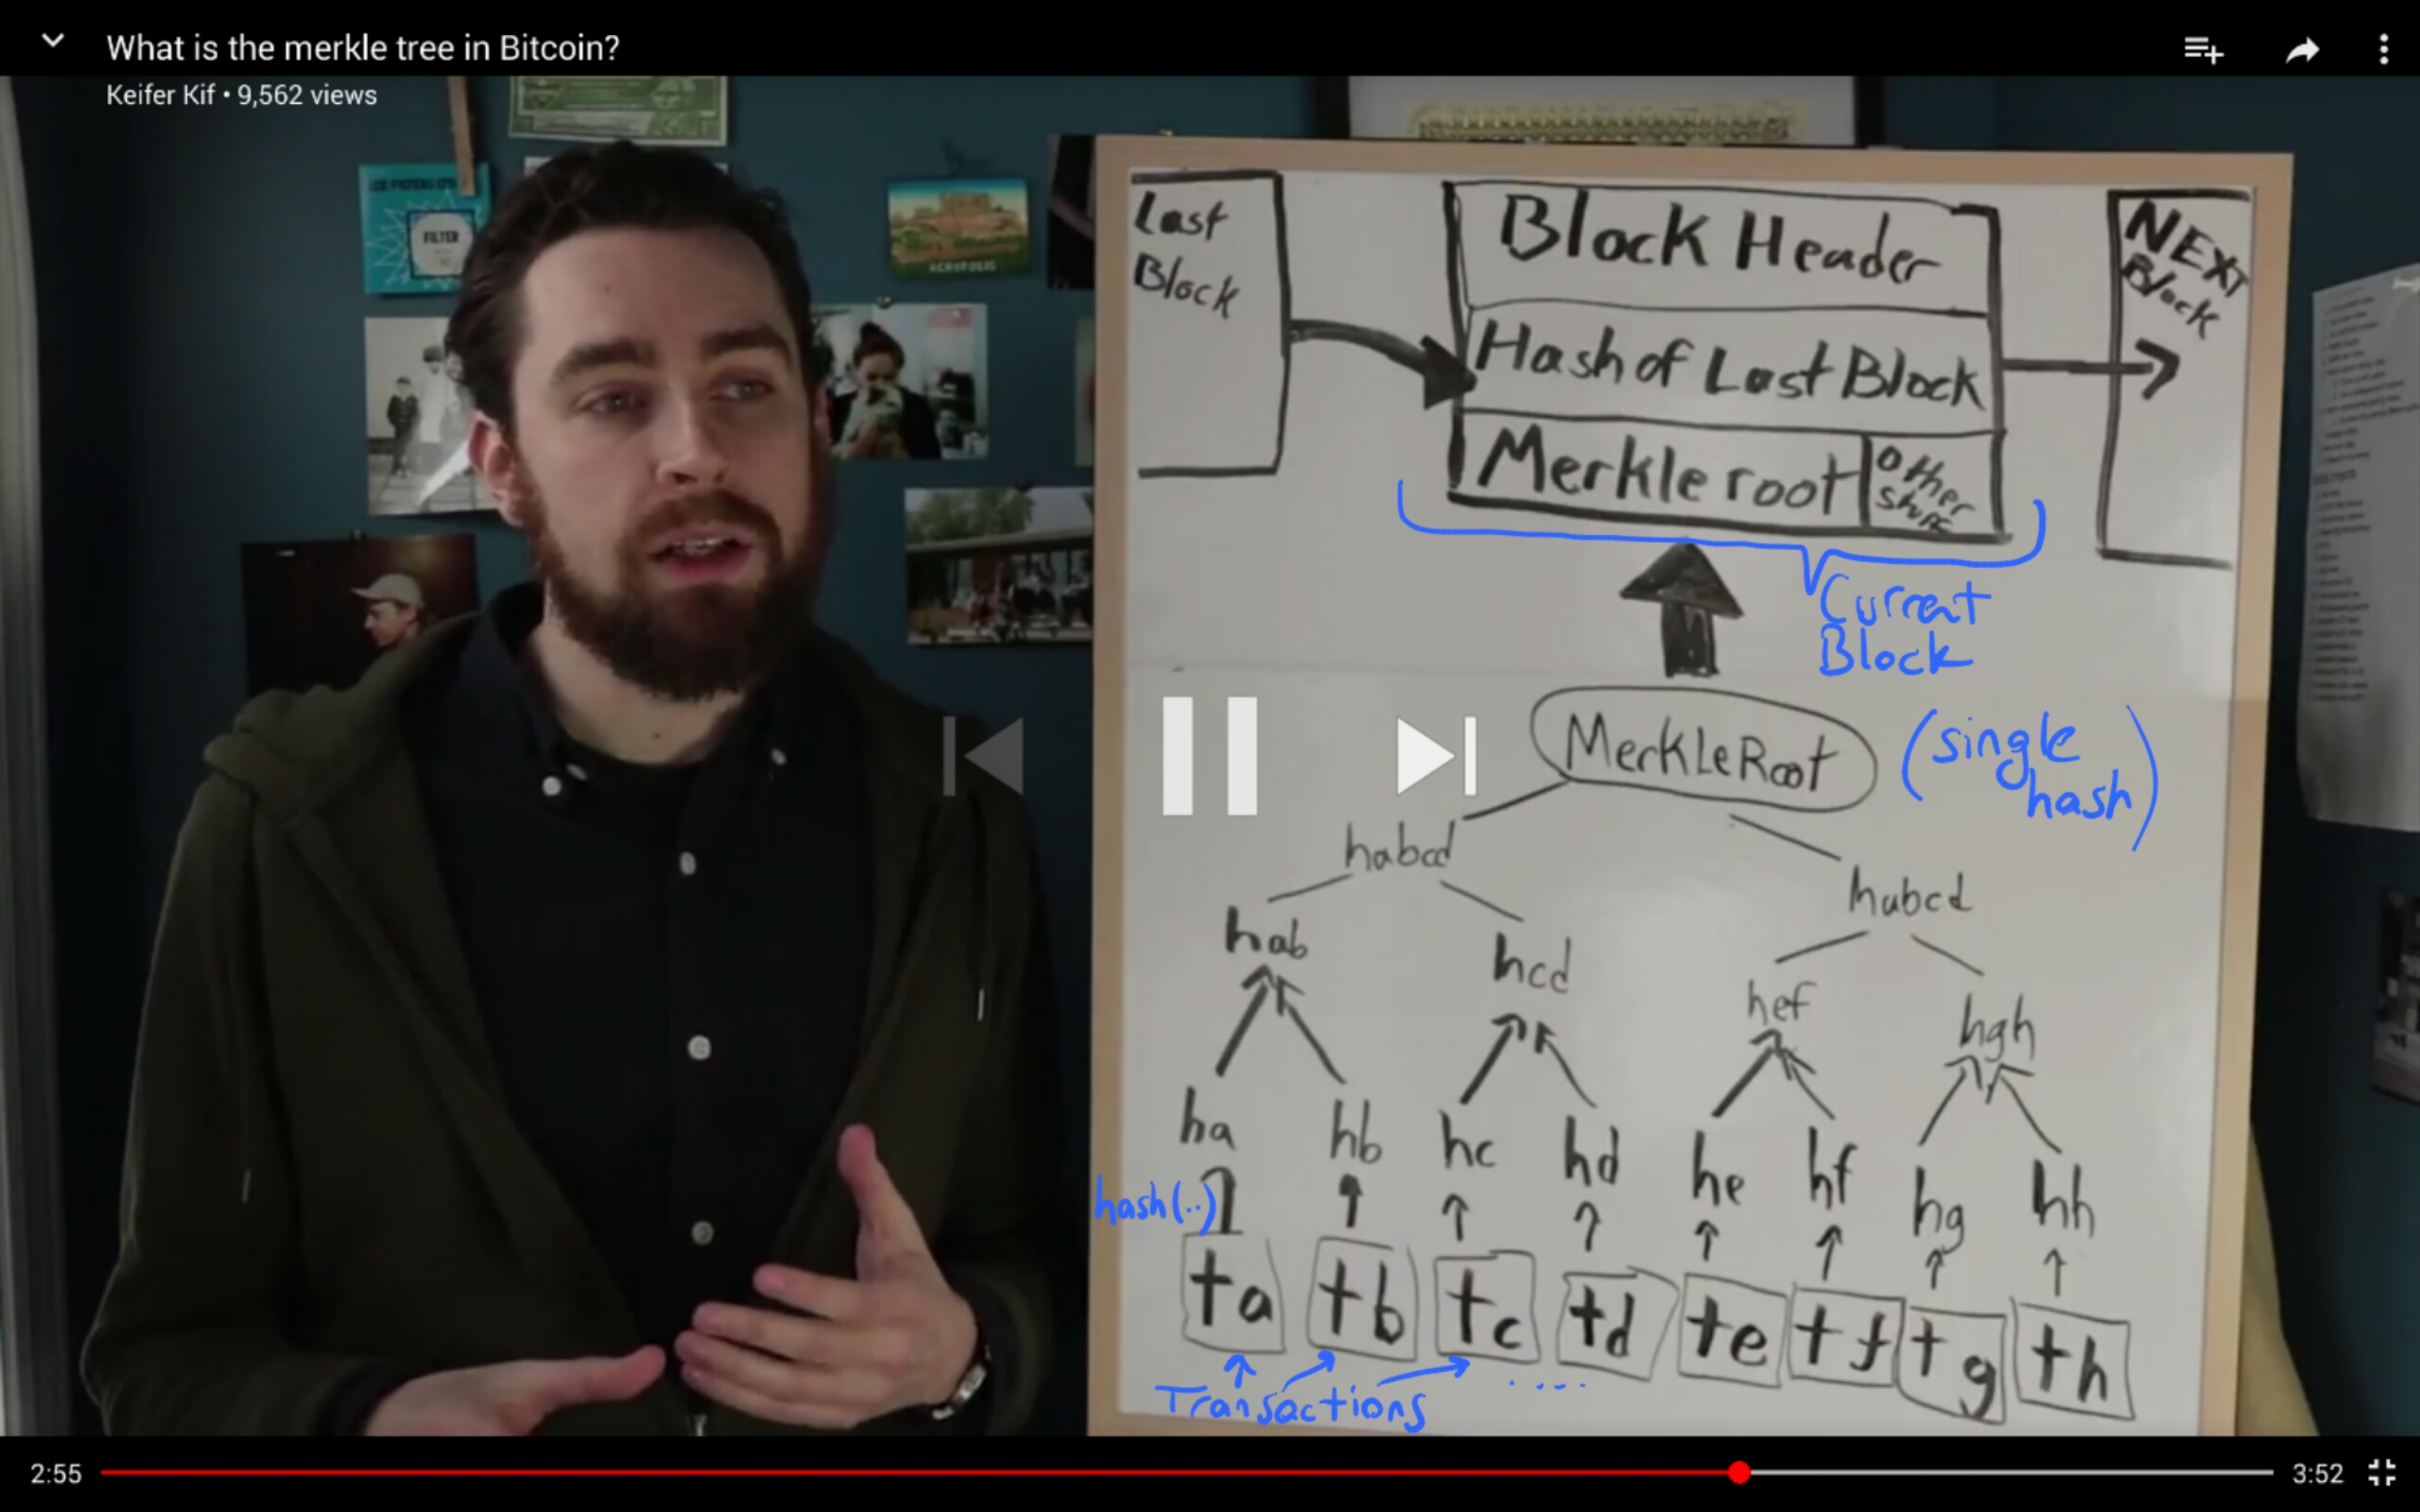 What is the merkle tree in Bitcoin?
Keifer Kif • 9,562 views
FILTER
ACROPOLIS
Last
Block
Block Header
Hash of Last Block
Merkle root
Other
NEXT
Block
Current
Block
MerkleRoot
(single
hash)
habcd
habcd
hab
hcd
hef
hgh
ha
hb
hc
hd
he
hf
hg
hh
hash(..)
ta
tb
tc
td
te
tf
tg
th
Transactions
....
2:55
3:52